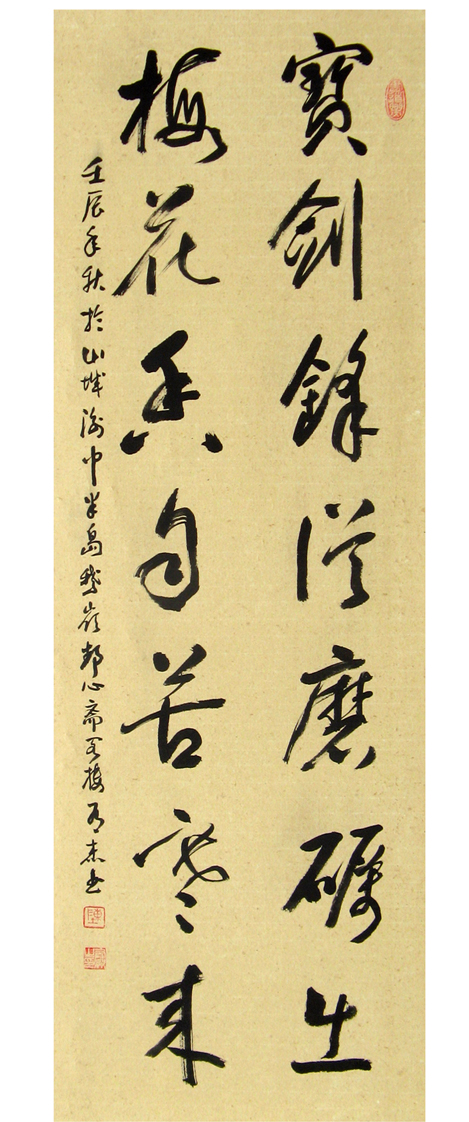 寶劍鋒從磨礪出
梅花香自苦寒來
壬辰年秋於山城渝中半島鵝嶺静心斋